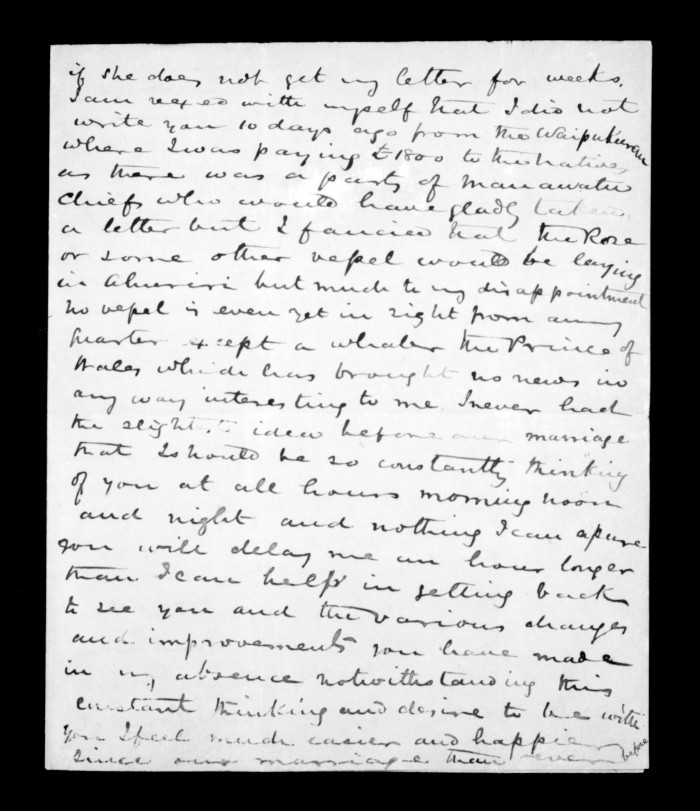 if she does not get my letter for weeks.
I am vexed with myself that I did not
write you 10 days ago from the Waipukurau
where I was paying £1800 to the natives
as there was a party of Manawatu
chiefs who would have gladly taken
a letter but I fancied that the Rose
or some other vessel would be laying
in Ahuriri but much to my disappointment
no vessel is even yet in sight from any
quarter except a whaler the Prince of
Wales which has brought no news in
any way interesting to me. I never had
the slightest idea before our marriage
that I should be so constantly thinking
of you at all hours morning noon
and night and nothing I can assure
you will delay me an hour longer
than I can help in getting back
to see you and the various changes
and improvements you have made
in my absence notwithstanding this
constant thinking and desire to be with
you I feel much easier and happier
since our marriage than ever before